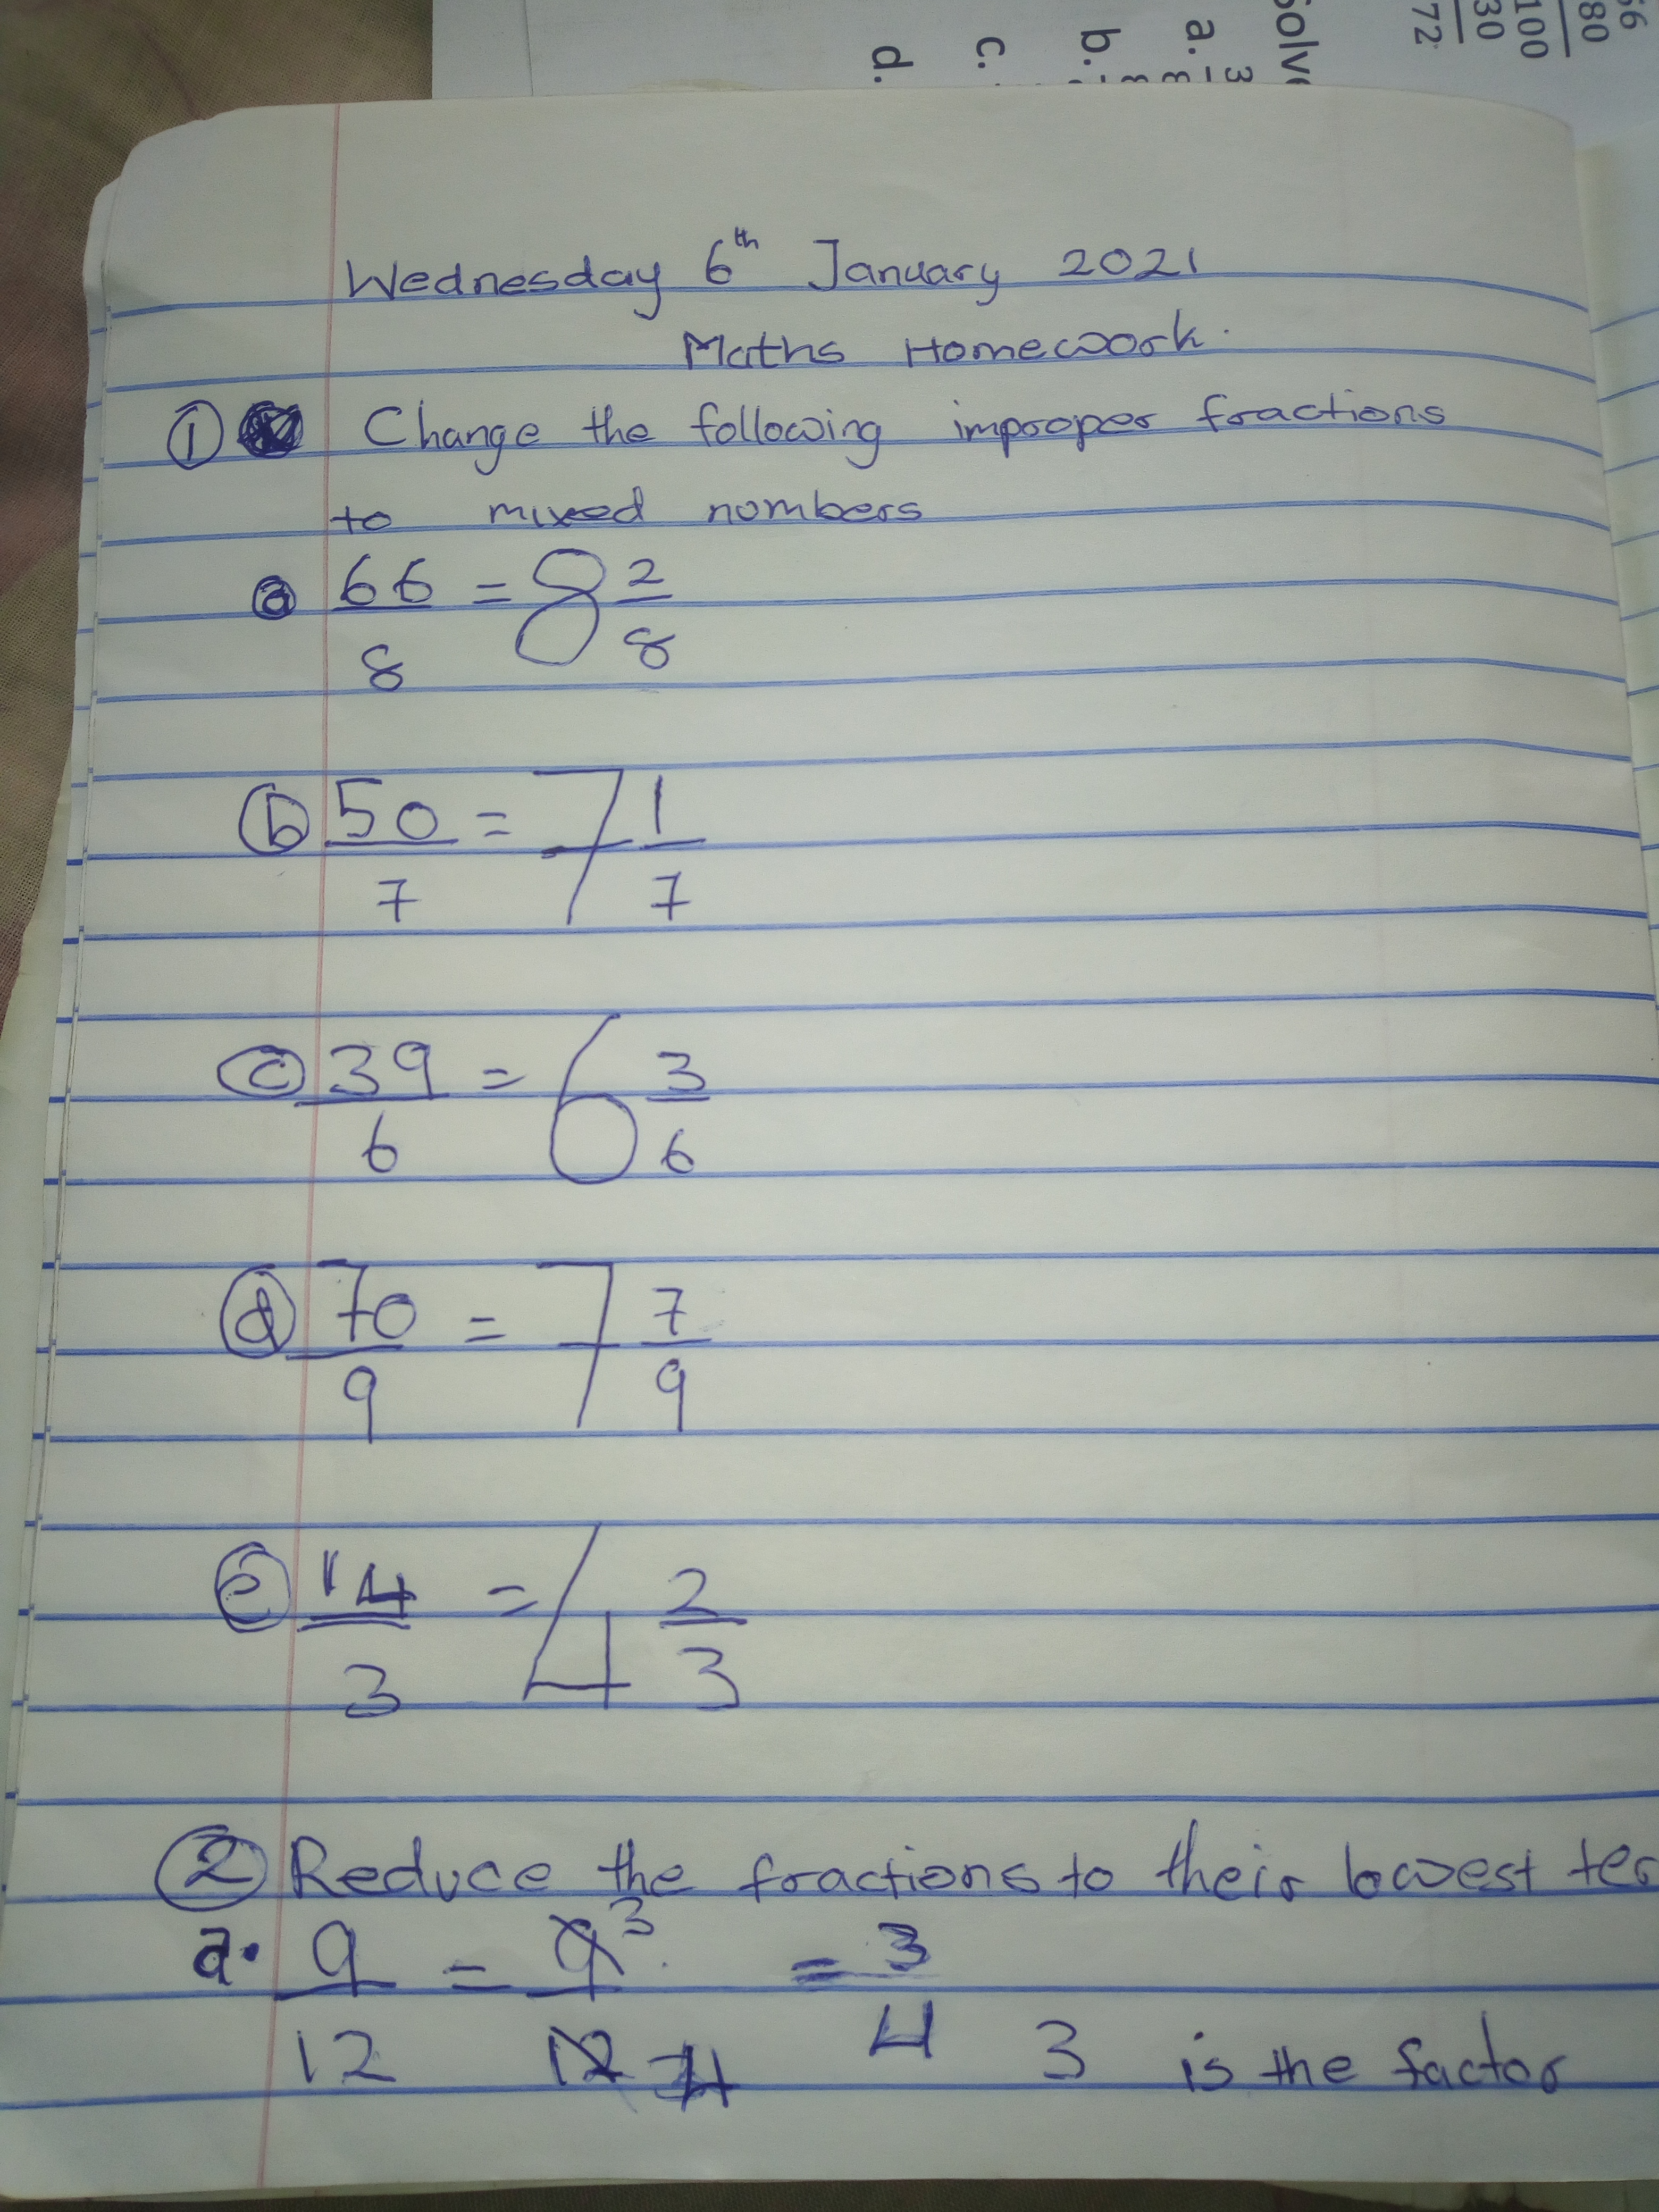 66
80
100
30
72
Solve
a. 3
b.
c.
d.
Wednesday 6th January 2021
Maths Homework.
① Change the following improper fractions
to mixed numbers
ⓐ 66/8 = 8 2/8
ⓑ 50/7 = 7 1/7
ⓒ 39/6 = 6 3/6
ⓓ 70/9 = 7 7/9
ⓔ 14/3 = 4 2/3
② Reduce the fractions to their lowest ter
a. 9/12 = 9 3/12 4 = 3/4 3 is the factor